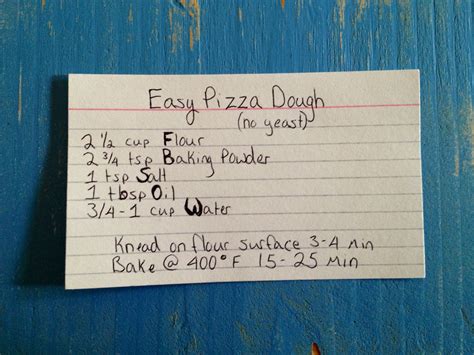 Easy Pizza Dough
(no yeast)
2 1/2 cup Flour
2 3/4 tsp Baking Powder
1 tsp Salt
1 tbsp Oil
3/4 - 1 cup Water
Knead on flour surface 3-4 min
Bake @ 400°F 15-25 Min